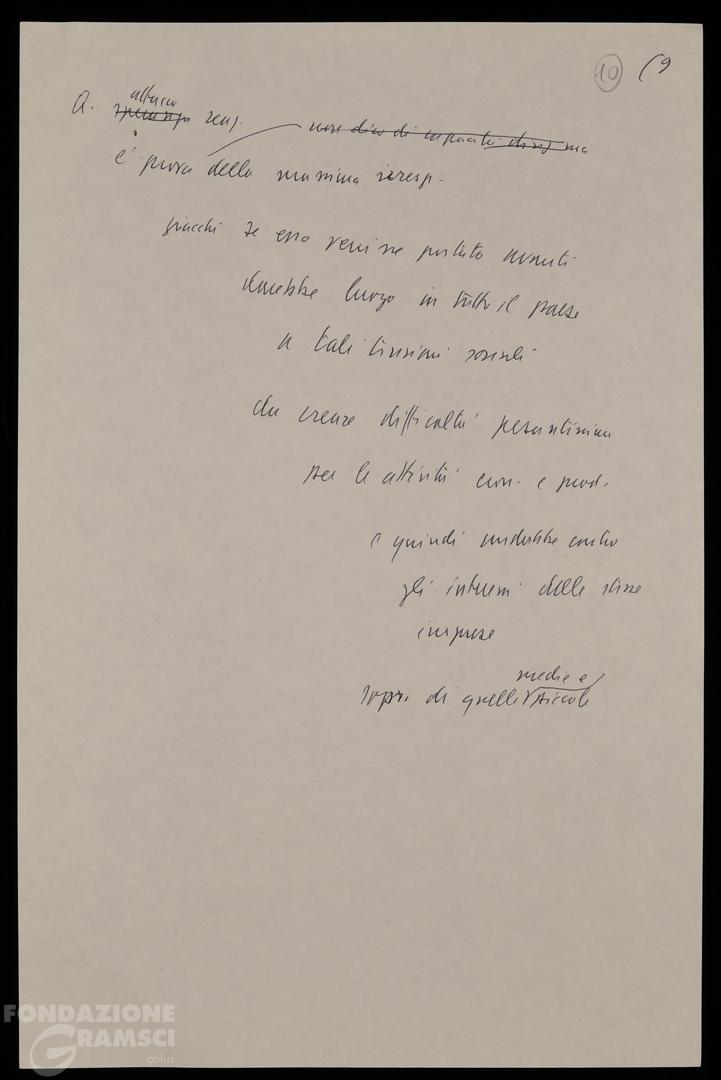 10 (9
A. attacco
non dico di incapacità ma
è prova della massima irresp.
giacché se esso venisse portato avanti
darebbe luogo in tutto il paese
a tali tensioni sociali
da creare difficoltà pesantissime
per le attività econ. e prod.
e quindi andrebbe contro
gli interessi delle stesse
imprese
medie e
sopr. di quelle piccole
FONDAZIONE
GRAMSCI
onlus